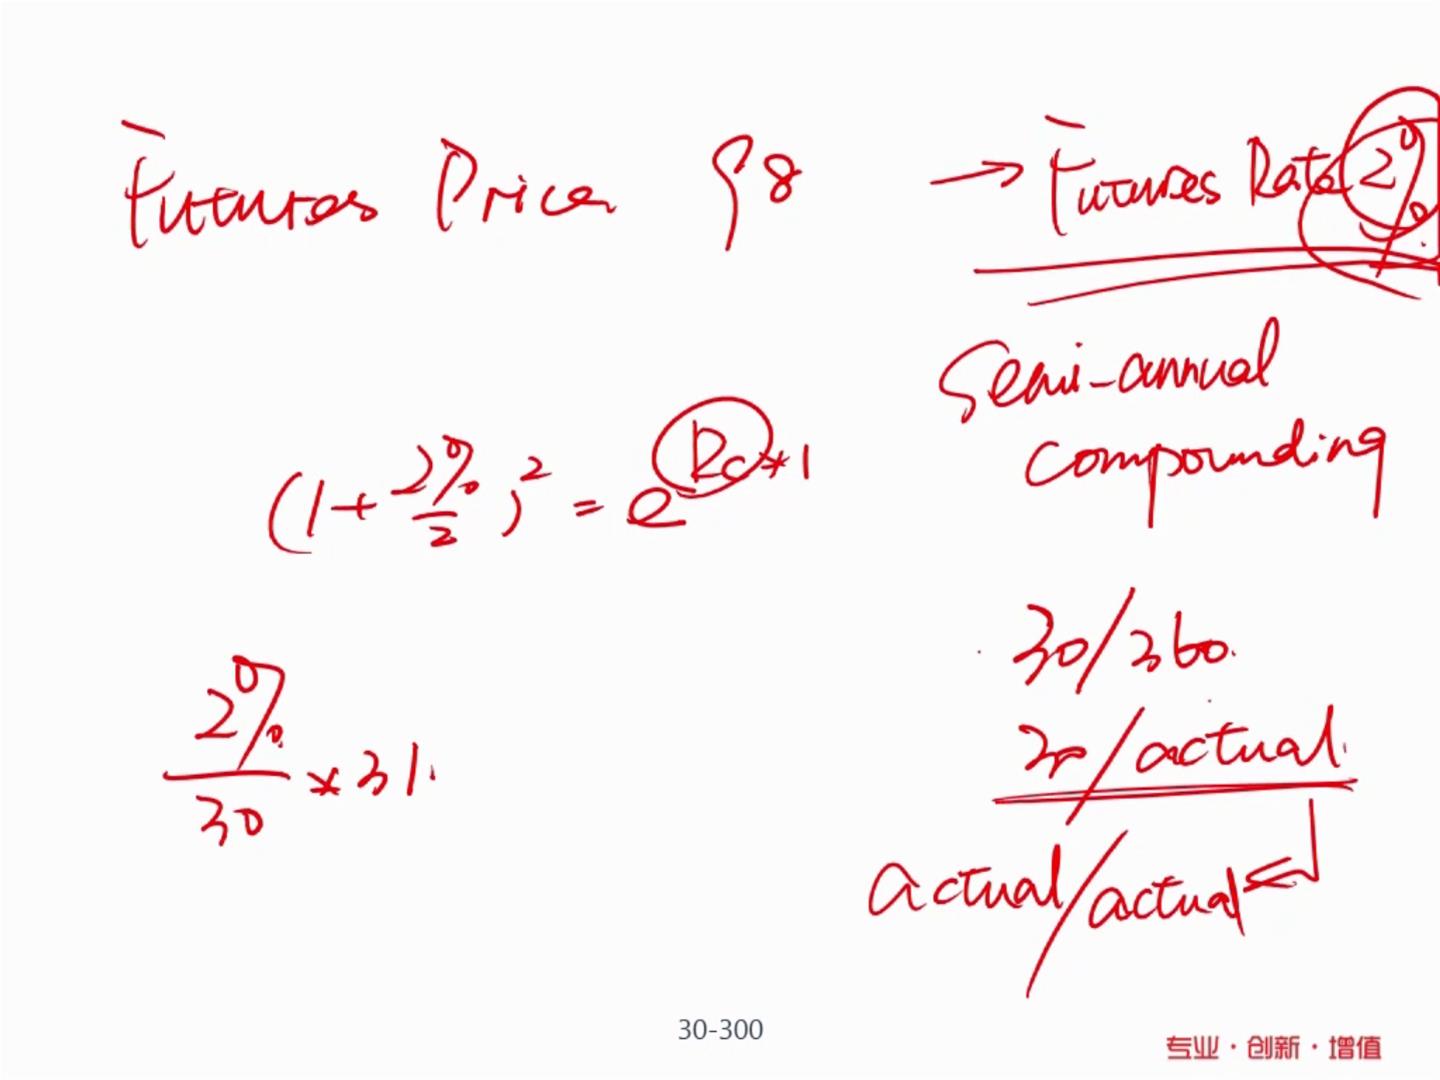 Futures Price 98 → Futures Rate 2%
Semi-annual
compounding
(1+2%/2)² = e^Rc*1
30/360.
2%/30 * 31.
30/actual.
actual/actual
30-300
专业·创新·增值